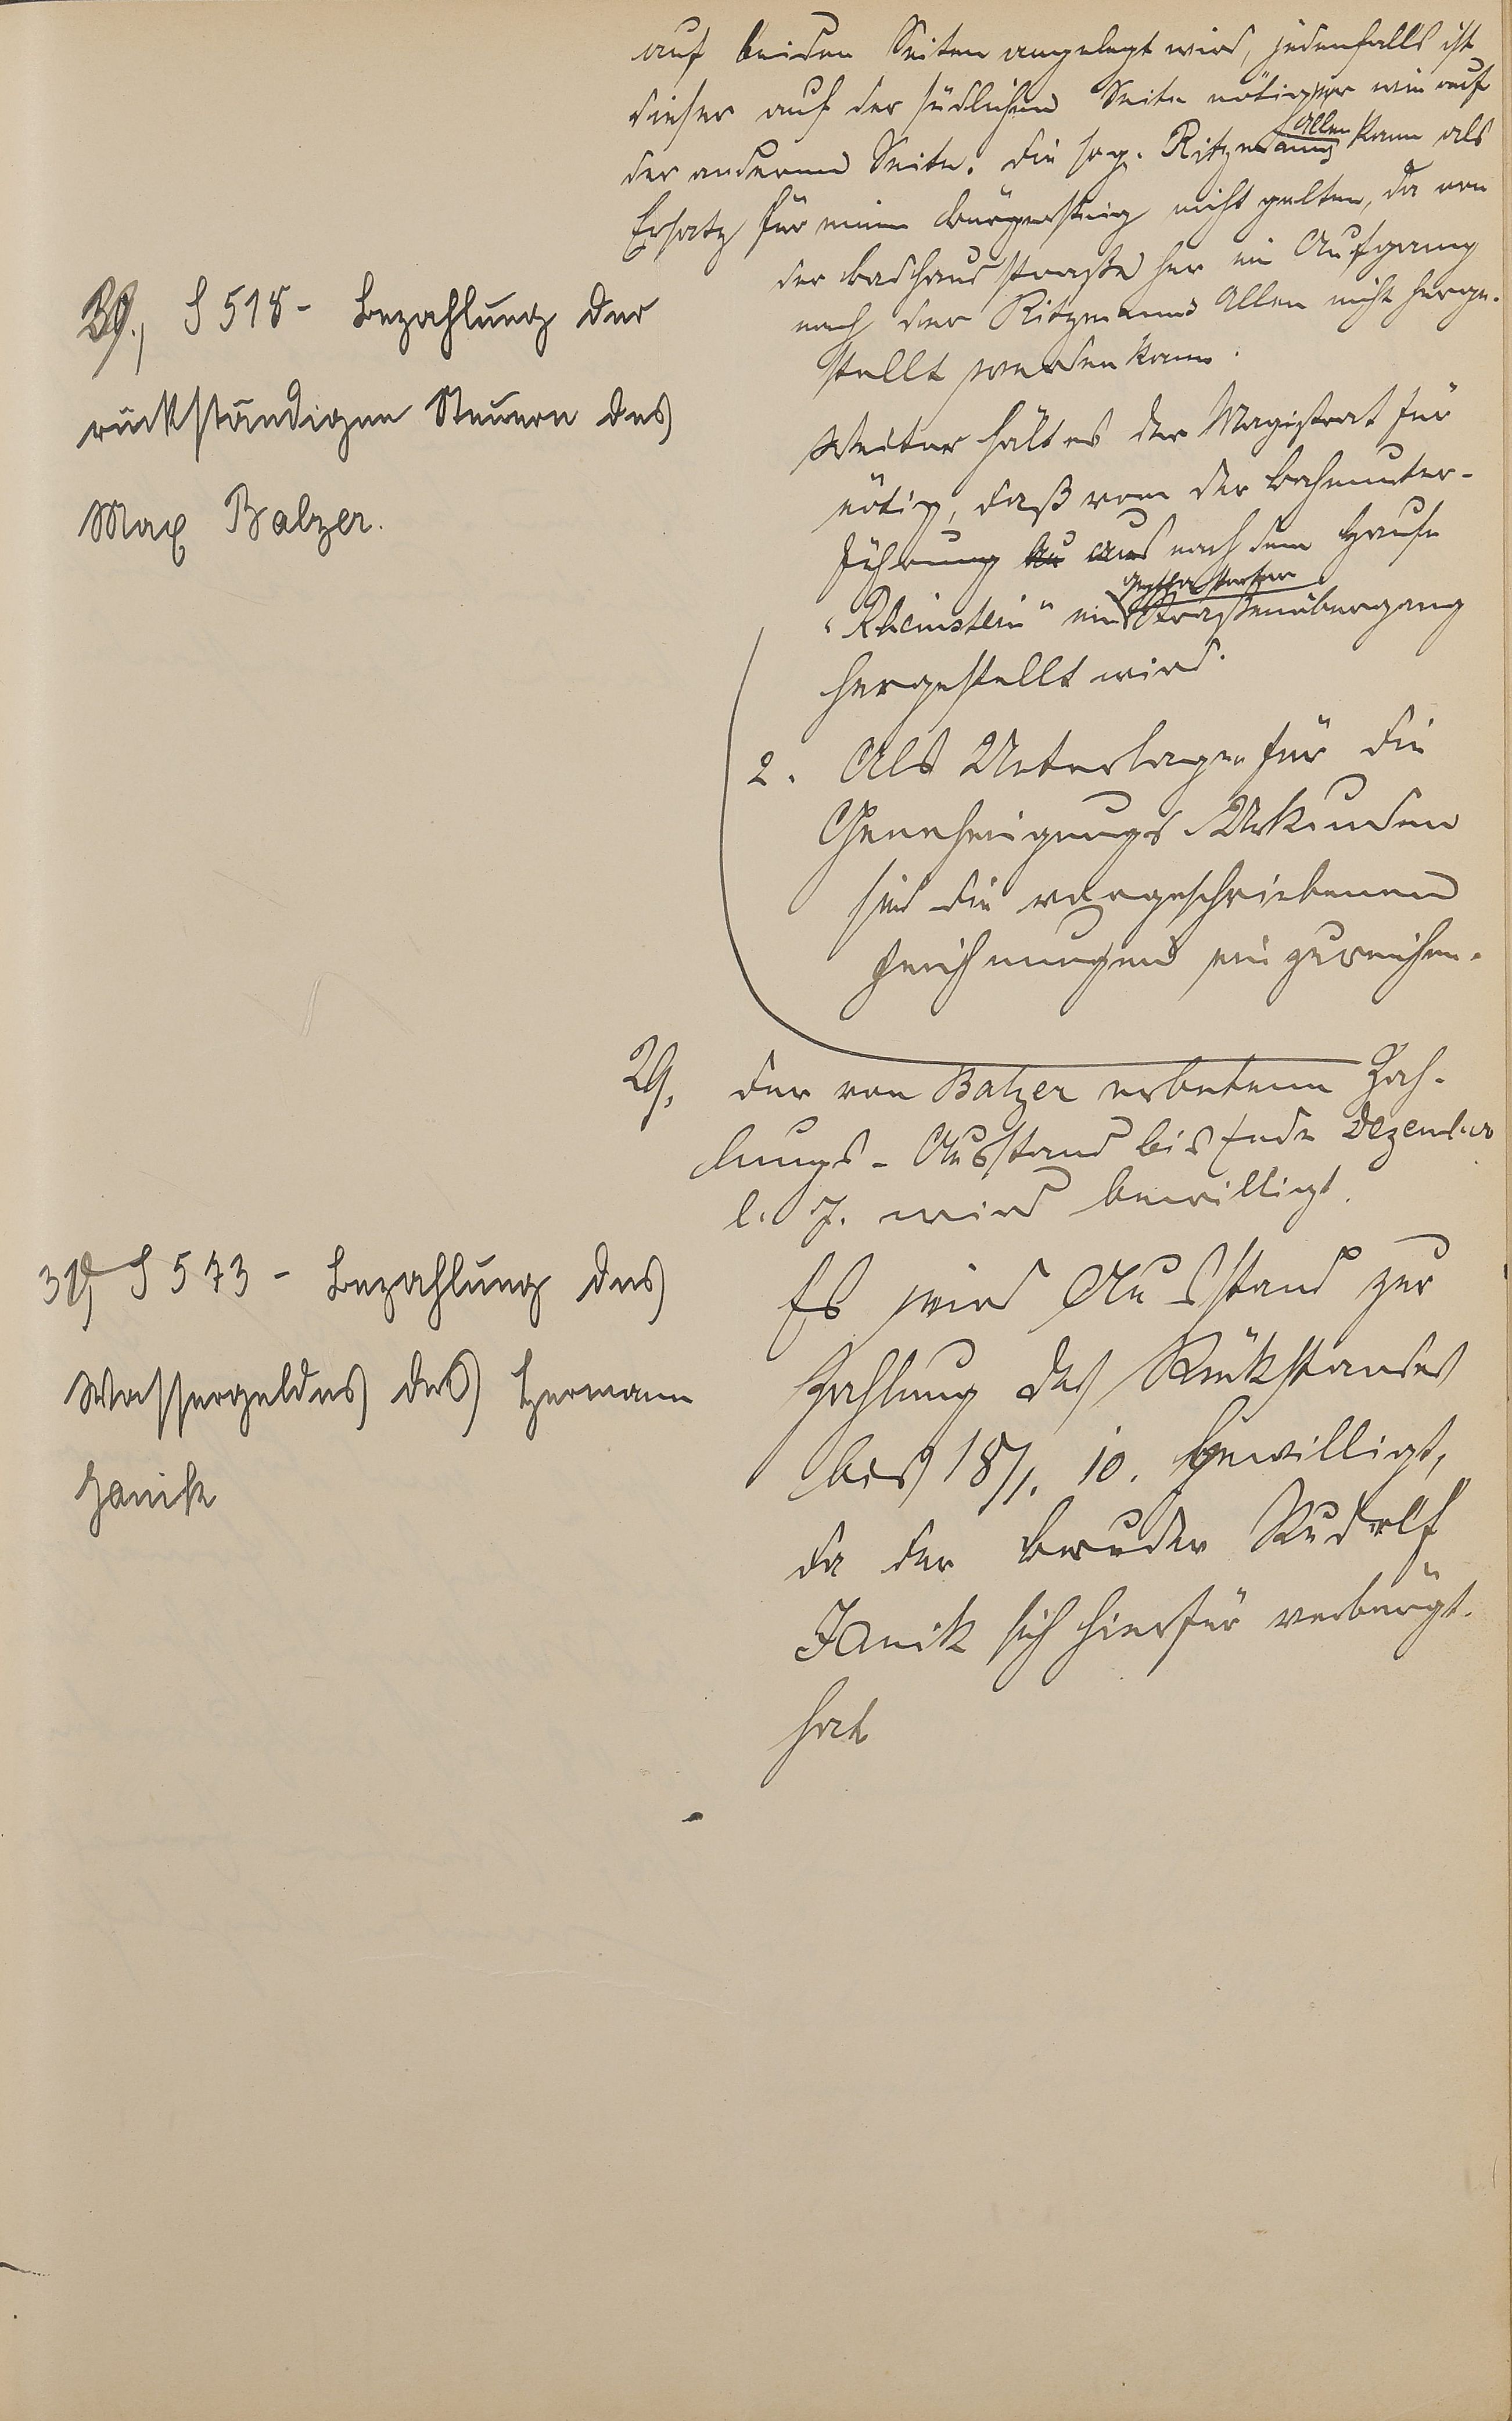 auf beiden Seiten angelegt wird, jedenfalls ist
dieser auf der südlichen Seite nötiger wie auf
der anderen Seite. Die sog. Ritzmanns Allee kann als
Ersatz für einen Bürgersteig nicht gelten, da von
der Badhausstraße her ein Aufgang
nach der Ritzmanns Allee nicht herge-
stellt werden kann.
Weiter hält es der Magistrat für
nötig, daß von der Bahnunter-
führung aus nach dem Hause
"Rheinstein" ein gepflasterter Straßenübergang
hergestellt wird.
2. Als Unterlagen für die
Genehmigungs Urkunden
sind die vorgeschriebenen
Zeichnungen einzureichen.
30., S 518 - Bezahlung der
rückständigen Steuern des
Max Balzer.
29. Der von Balzer erbetene Zah-
lungs-Ausstand bis Ende Dezember
l. J. wird bewilligt.
31, S 573 - Bezahlung des
Wassergeldes des Hermann
Janik
Es wird Ausstand zur
Zahlung des Rückstandes
bis 18/1. 10. bewilligt,
da der Bruder Rudolf
Janik sich hierfür verbürgt
hat